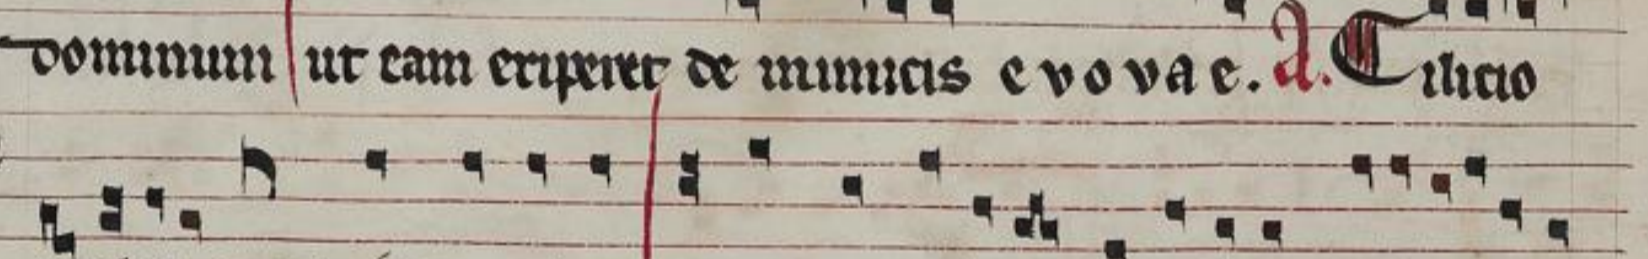 dominum ut eam eriperet de inimicis e v o v a e. A. Cilicio